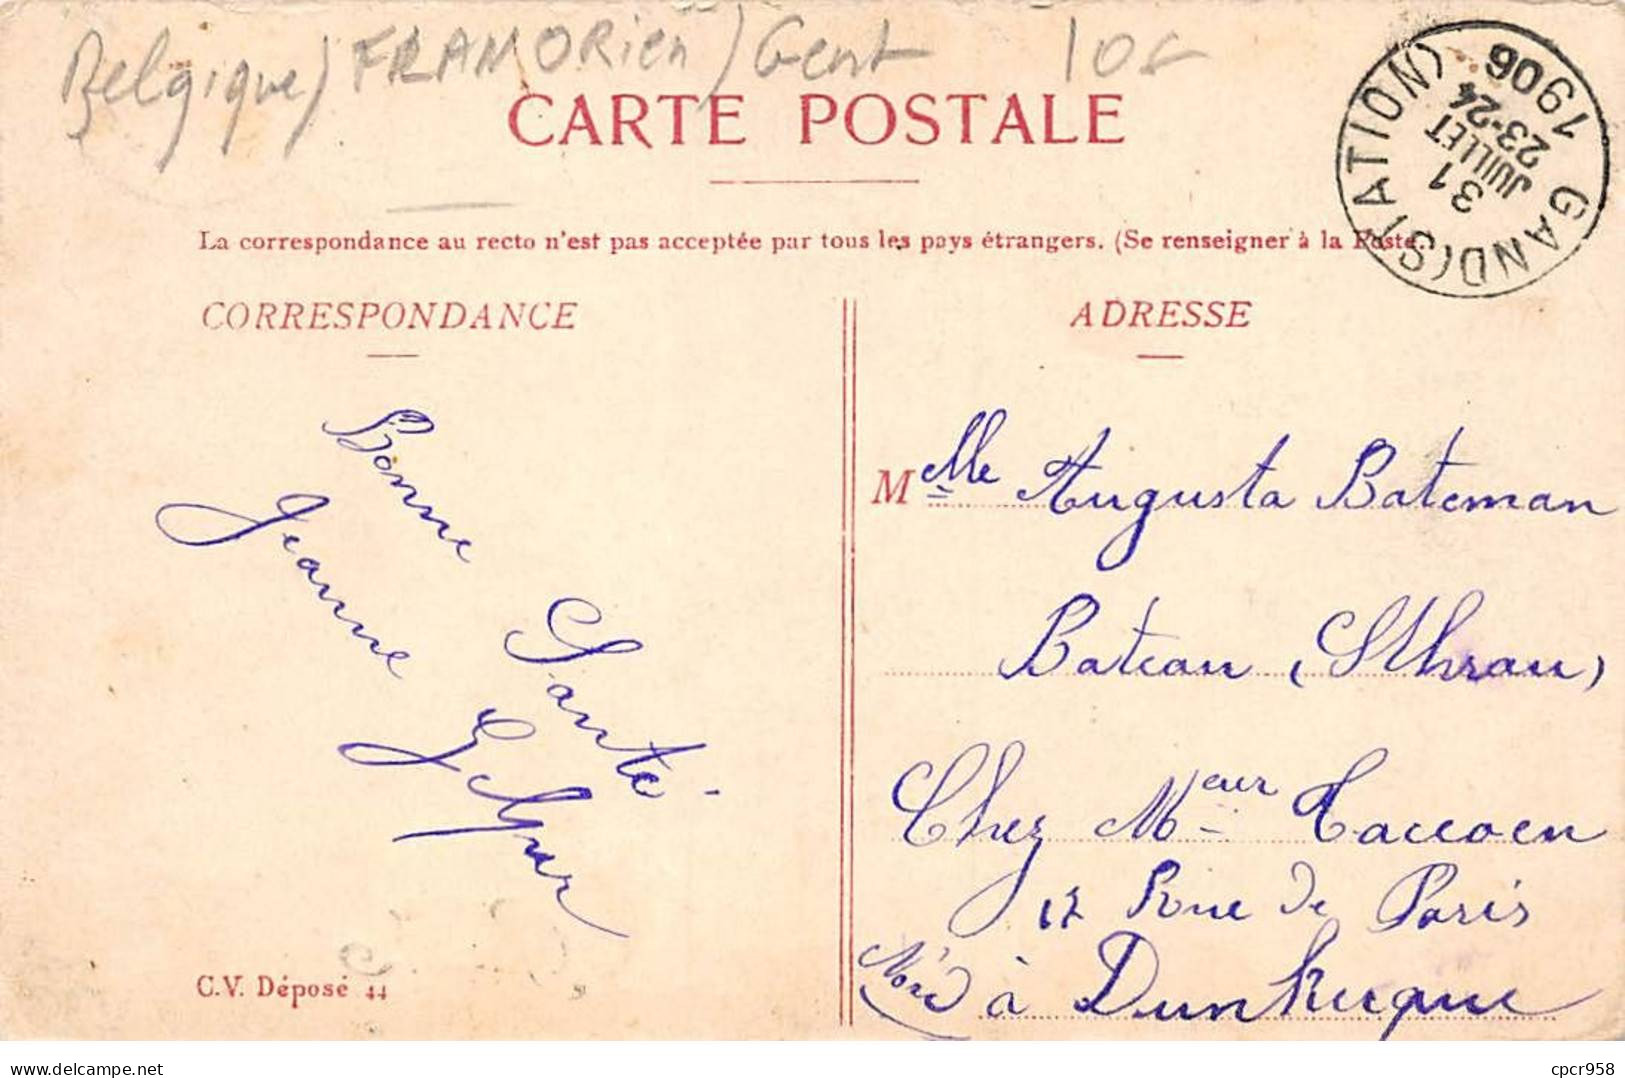 Belgique) FRAMORien) Gent 10€
CARTE POSTALE
GAND (STATION)
31
JUILLET
23-24
1906
La correspondance au recto n'est pas acceptée par tous les pays étrangers. (Se renseigner à la Poste.)
CORRESPONDANCE
ADRESSE
Bonne Santé
Jeanne
Melle Augusta Bateman
Bateau (Sthrau)
Chez Meur Taccoen
17 Rue de Paris
(Nord) à Dunkerque
C.V. Déposé 44
Delcampe.net
cpcr958